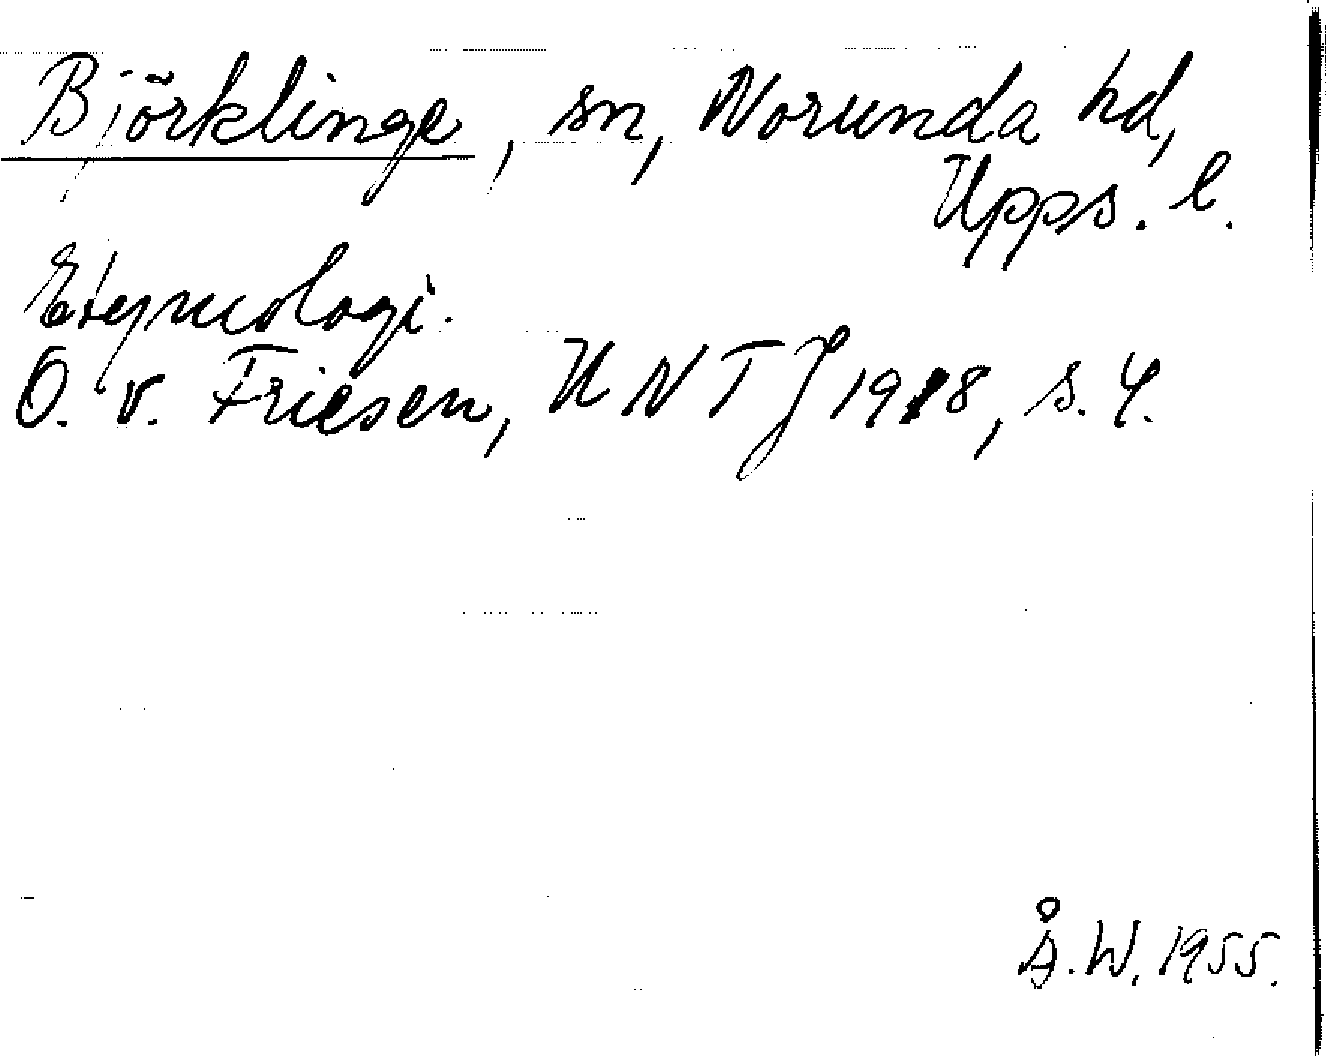 Björklinge, sn, Norunda hd,
Upps. l.
Etymologi.
O. v. Friesen, UNTJ 1918, s. 4.
Å.W. 1955.